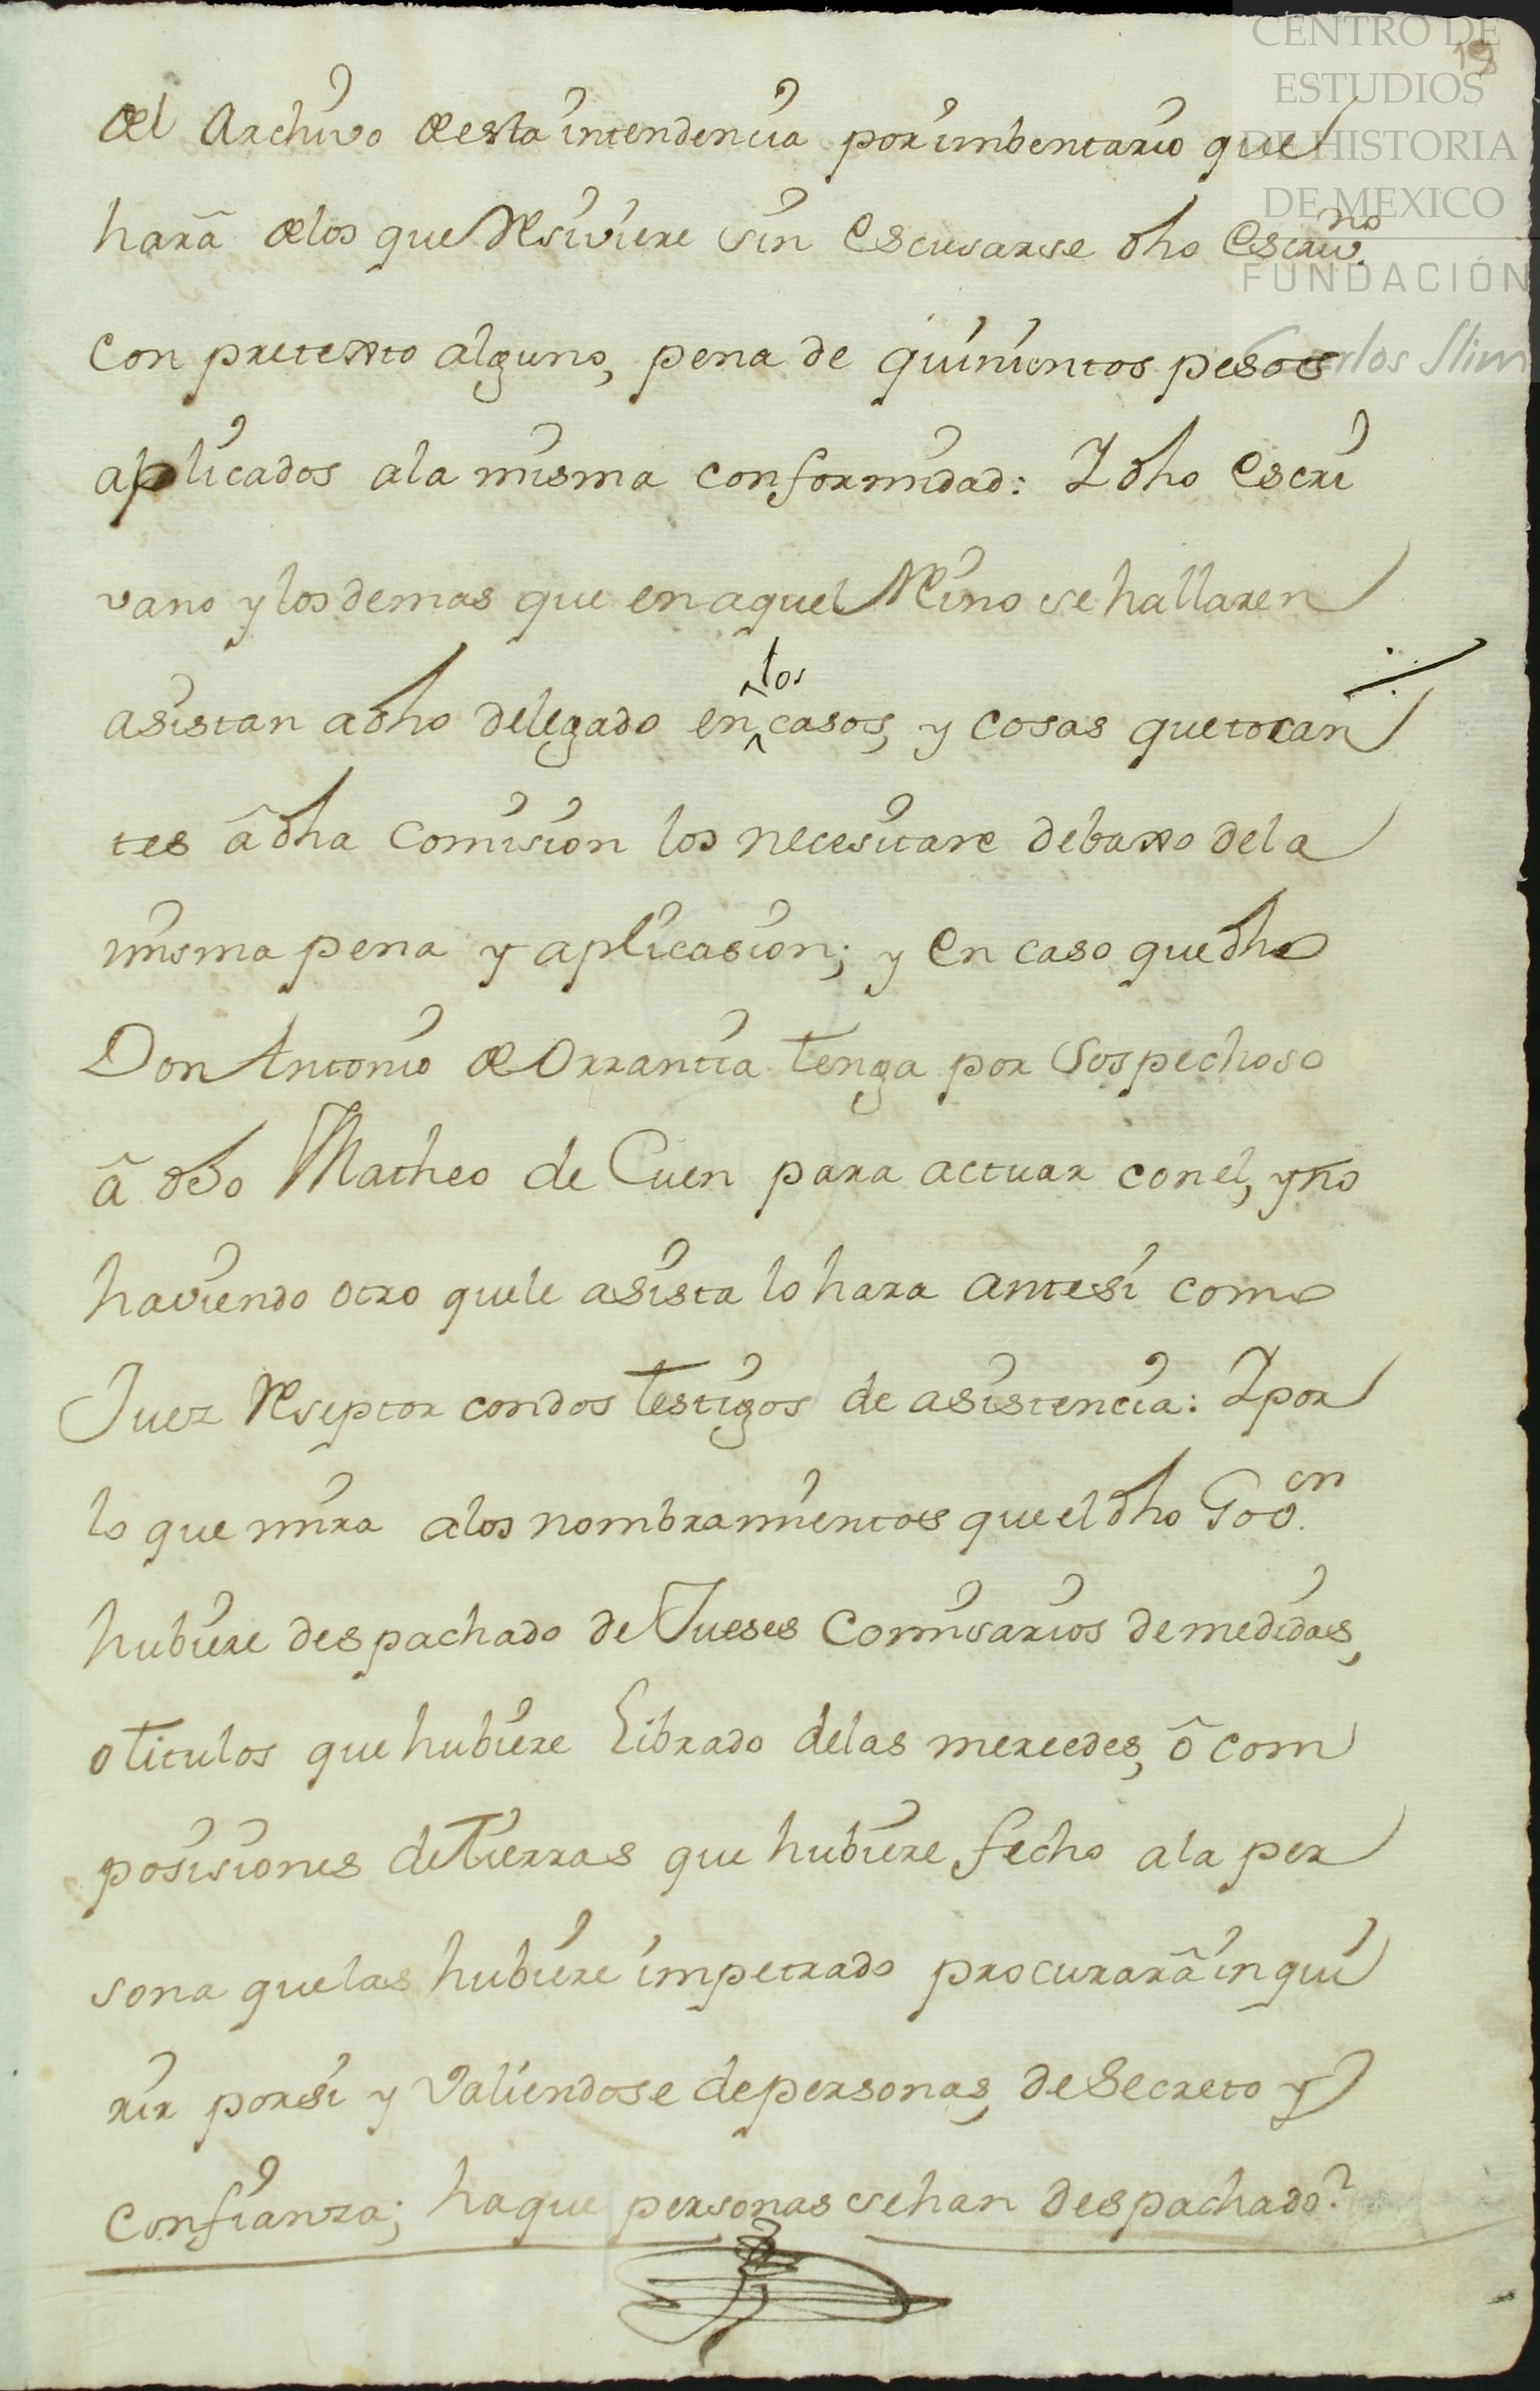 CENTRO DE
ESTUDIOS
DE HISTORIA
DE MEXICO
FUNDACIÓN
Carlos Slim
19
del Archivo de esta intendencia por imbentario que
harâ de los que Resiviere sin escusarse dho escriv.no
con pretexto alguno, pena de quinientos pesos
aplicados a la misma conformidad: Y dho escri
vano y los demas que en aquel Reino se hallaren
asistan a dho delegado en los casos, y cosas que tocan
tes â dha comision los necesitare debaxo de la
misma pena y aplicasion; y en caso que dho
Don Antonio de Orrantia tenga por sospechoso
â dho Matheo de Cuen para actuar con el, y no
haviendo otro que le asista lo hara ante si como
Juez Reseptor con dos testigos de asistencia: Y por
lo que mira a los nombramientos que el dho Gov.on
hubiere despachado de Jueses Comisarios de medidas,
o titulos que hubiere librado de las mercedes, ô com
posisiones de tierras que hubiere fecho a la per
sona que las hubiere impetrado procurarâ inqui
rir por si y valiendose de personas, de secreto y
confianza; ha que personas se han despachado?